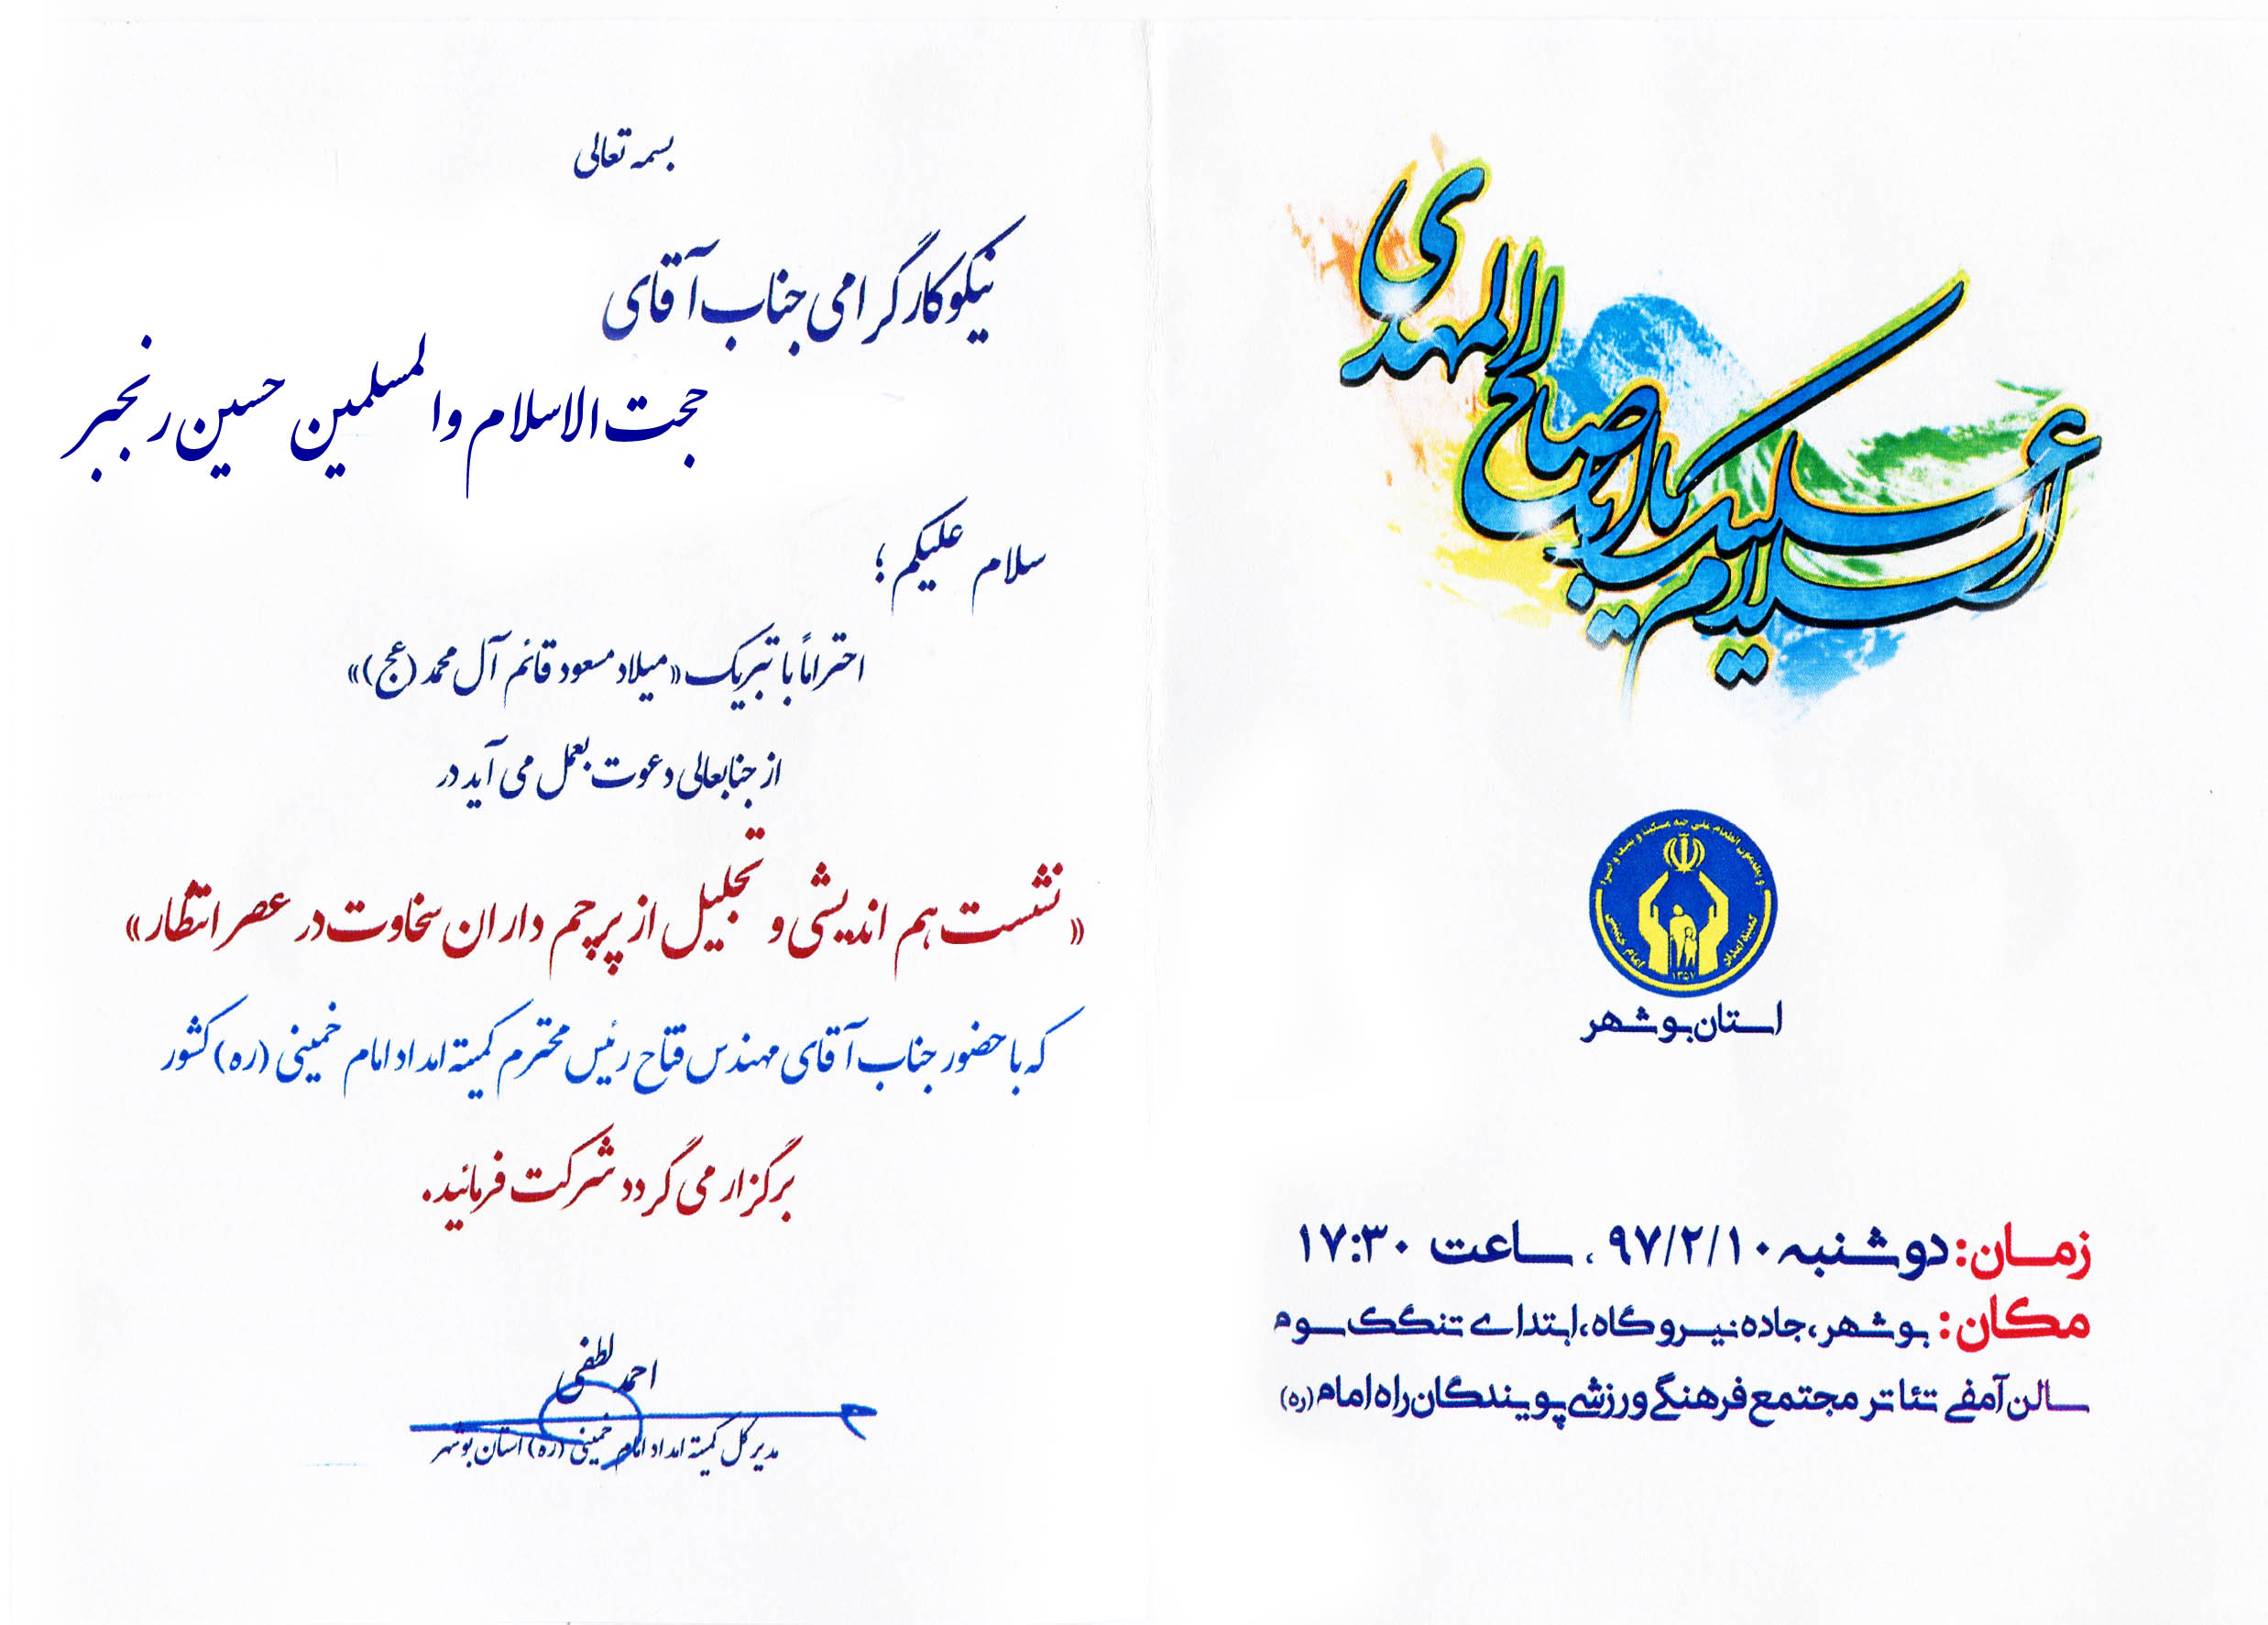 السلام علیک یا اباصالح المهدی
کمیته امداد امام خمینی
۱۳۵۷
استان بوشهر
زمان: دوشنبه ۹۷/۲/۱۰ ، ساعت ۱۷:۳۰
مکان: بوشهر، جاده نیروگاه، ابتدای تنگک سوم
سالن آمفی تئاتر مجتمع فرهنگی ورزشی پویندگان راه امام (ره)
بسمه تعالی
نیکوکار گرامی جناب آقای
حجت الاسلام والمسلمین حسین رنجبر
سلام علیکم ؛
احتراماً با تبریک «میلاد مسعود قائم آل محمد (عج)»
از جنابعالی دعوت بعمل می آید در
«نشست هم اندیشی و تجلیل از پرچم داران سخاوت در عصر انتظار»
که با حضور جناب آقای مهندس فتاح رئیس محترم کمیته امداد امام خمینی (ره) کشور
برگزار می گردد شرکت فرمائید.
احمد لطفی
مدیر کل کمیته امداد امام خمینی (ره) استان بوشهر